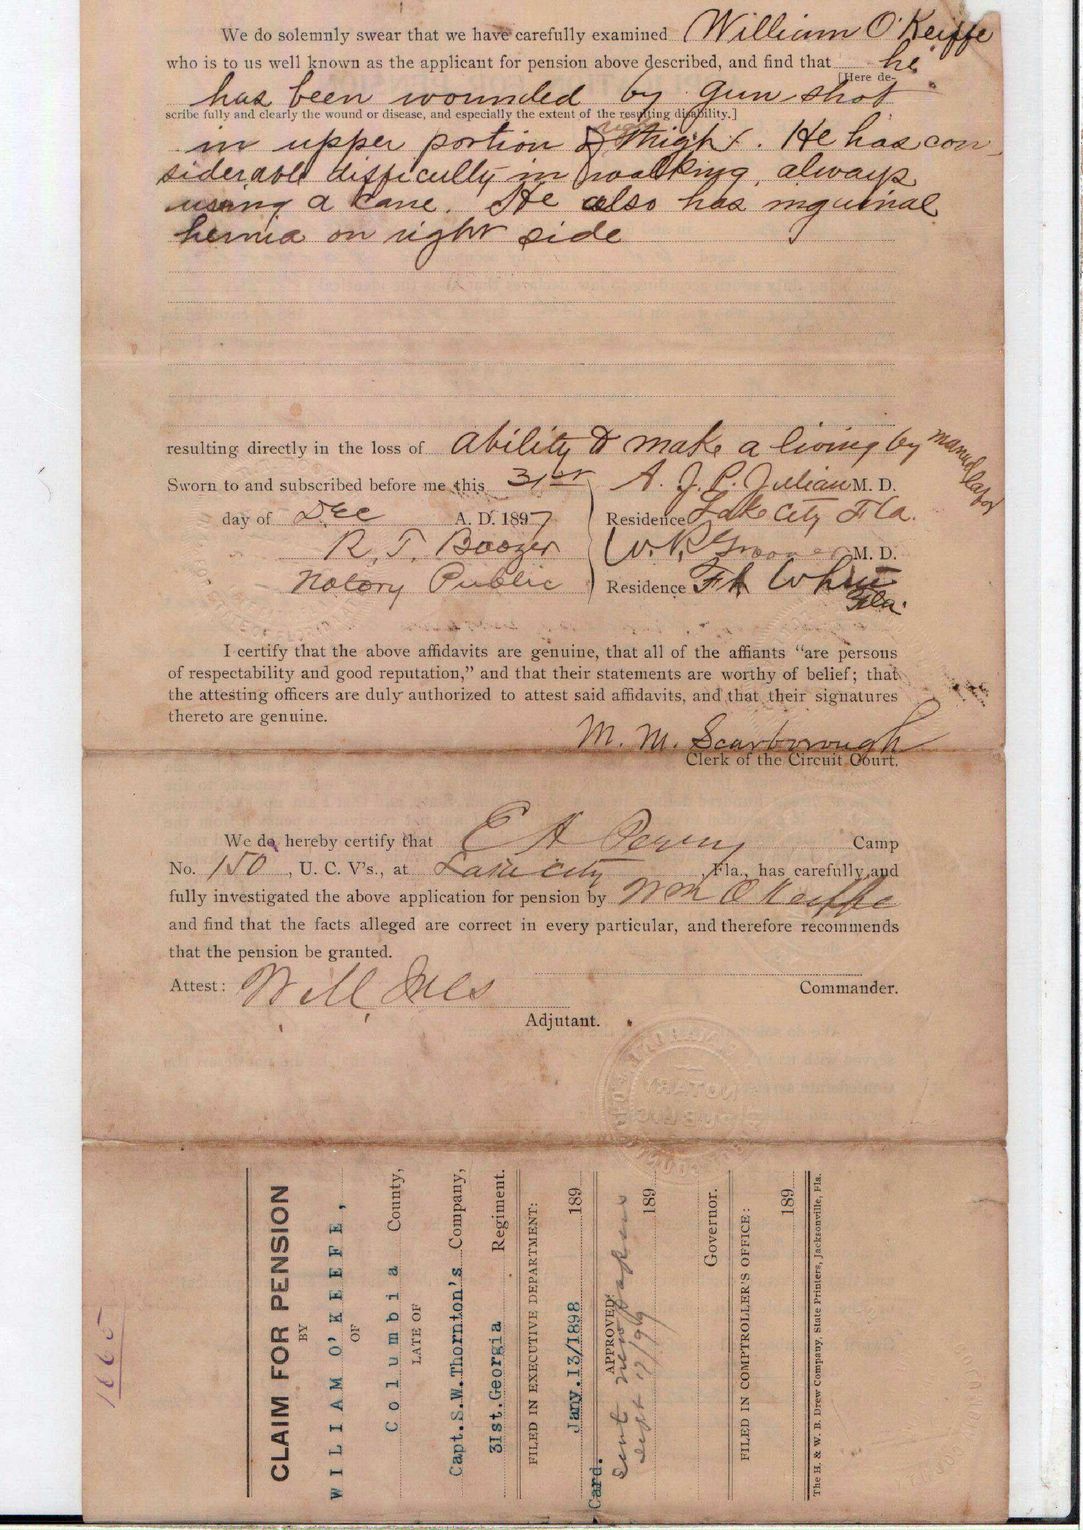 We do solemnly swear that we have carefully examined William O'Keiffe
who is to us well known as the applicant for pension above described, and find that he
[Here de-
has been wounded by gun shot
scribe fully and clearly the wound or disease, and especially the extent of the resulting disability.]
right
in upper portion of thigh. He has con-
siderabl difficulty in walking, always
using a cane. He also has inguinal
hernia on right side
resulting directly in the loss of ability to make a living by manuel labor
Sworn to and subscribed before me this 31st A. J. P. Julian M. D.
day of Dec A. D. 1897 Residence Lake City Fla.
R. T. Boozer W. P. M. D.
Notory Public Residence Ft White
Fla.
I certify that the above affidavits are genuine, that all of the affiants "are persons
of respectability and good reputation," and that their statements are worthy of belief; that
the attesting officers are duly authorized to attest said affidavits, and that their signatures
thereto are genuine.
M. M. Scarborough
Clerk of the Circuit Court.
We do hereby certify that E A Perry Camp
No. 150, U. C. V's., at Lake City Fla., has carefully and
fully investigated the above application for pension by Wm O Keiffe
and find that the facts alleged are correct in every particular, and therefore recommends
that the pension be granted.
Attest: Commander.
Adjutant.
NOTARY
PUBLIC
CLAIM FOR PENSION
BY
WILIAM O'KEEFE,
OF
Columbia County,
LATE OF
Capt.S.W.Thornton's Company,
31st.Georgia Regiment.
FILED IN EXECUTIVE DEPARTMENT:
Jany.13/1898 189
Card.
APPROVED:
Sent new papers
189
Sept 17/99
Governor.
FILED IN COMPTROLLER'S OFFICE:
189
The H. & W. B. Drew Company, State Printers, Jacksonville, Fla.